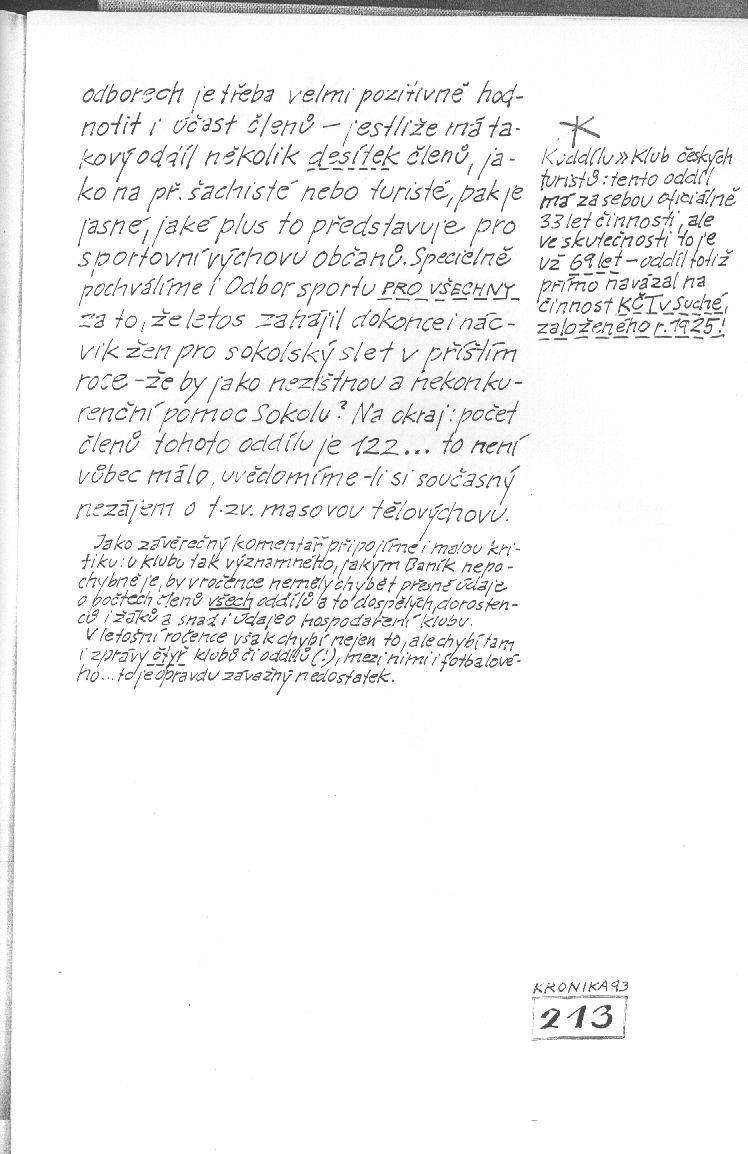 odborech je třeba velmi pozitivně hod-
notit i účast členů – jestliže má ta-
kový oddíl několik desítek členů, ja-
ko na př. šachisté nebo turisté, pak je
jasné, jaké plus to představuje pro
sportovní výchovu občanů. Specielně
pochválíme i Odbor sportu PRO VŠECHNY
za to, že letos zahájil dokonce i nác-
vik žen pro sokolský slet v příštím
roce – že by jako nezištnou a nekonku-
renční pomoc Sokolu? Na okraj: počet
členů tohoto oddílu je 122... to není
vůbec málo, uvědomíme-li si současný
nezájem o t.zv. masovou tělovýchovu.
Jako závěrečný komentář připojíme i malou kri-
tiku: u klubu tak významného, jakým Baník nepo-
chybně je, by v ročence neměly chybět přesné údaje
o počtech členů všech oddílů a to dospělých, dorosten-
ců i žáků a snad i údaje o hospodaření klubu.
V letošní ročence však chybí nejen to, ale chybí tam
i zprávy čtyř klubů či oddílů (!), mezi nimi i fotbalové-
ho... to je opravdu závažný nedostatek.
K oddílu » Klub českých
turistů: tento oddíl
má za sebou oficiálně
33 let činnosti, ale
ve skutečnosti to je
už 69 let – oddíl totiž
přímo navázal na
činnost KČT v Suché,
založeného r. 1925!
KRONIKA 93
213